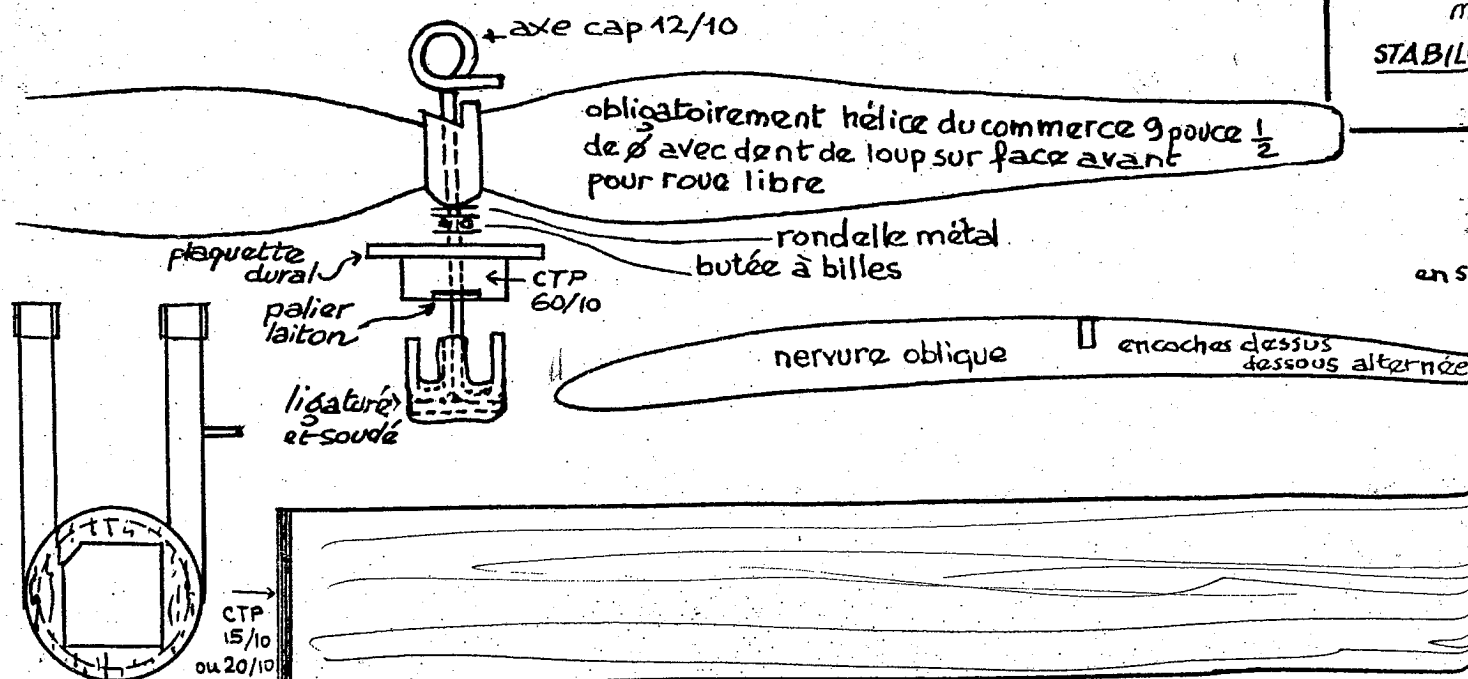 axe cap 12/10
m
STABIL
obligatoirement hélice du commerce 9 pouce 1/2
de ø avec dent de loup sur face avant
pour roue libre
rondelle métal
butée à billes
plaquette
dural
CTP
60/10
palier
laiton
en s
nervure oblique
encoches dessus
dessous alternée
ligaturé
et soudé
CTP
15/10
ou 20/10